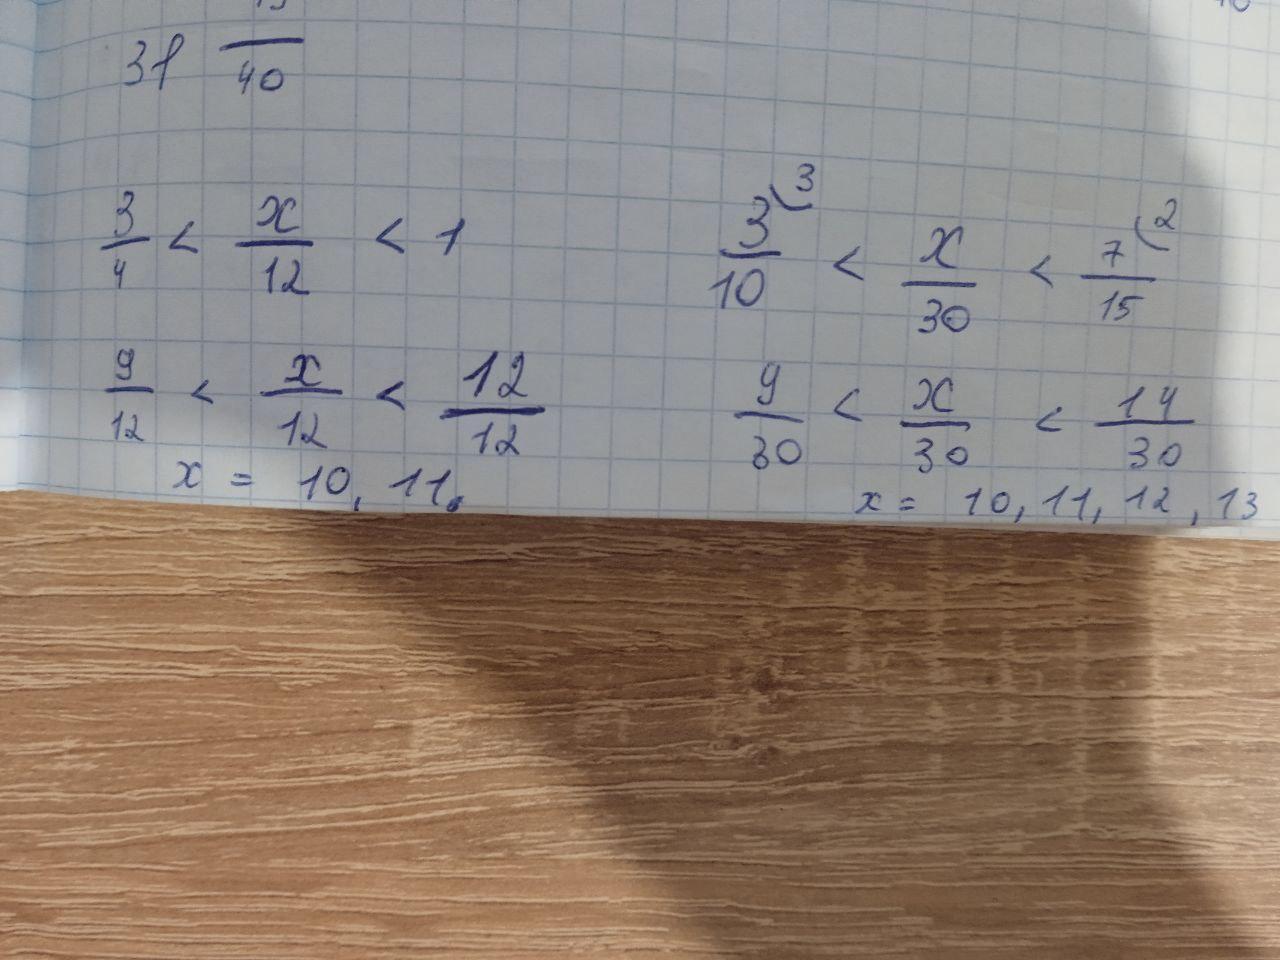 31 —/40
3/4 < x/12 < 1
9/12 < x/12 < 12/12
x = 10, 11.
3/10 (3 < x/30 < 7/15 (2
9/30 < x/30 < 14/30
x = 10, 11, 12, 13